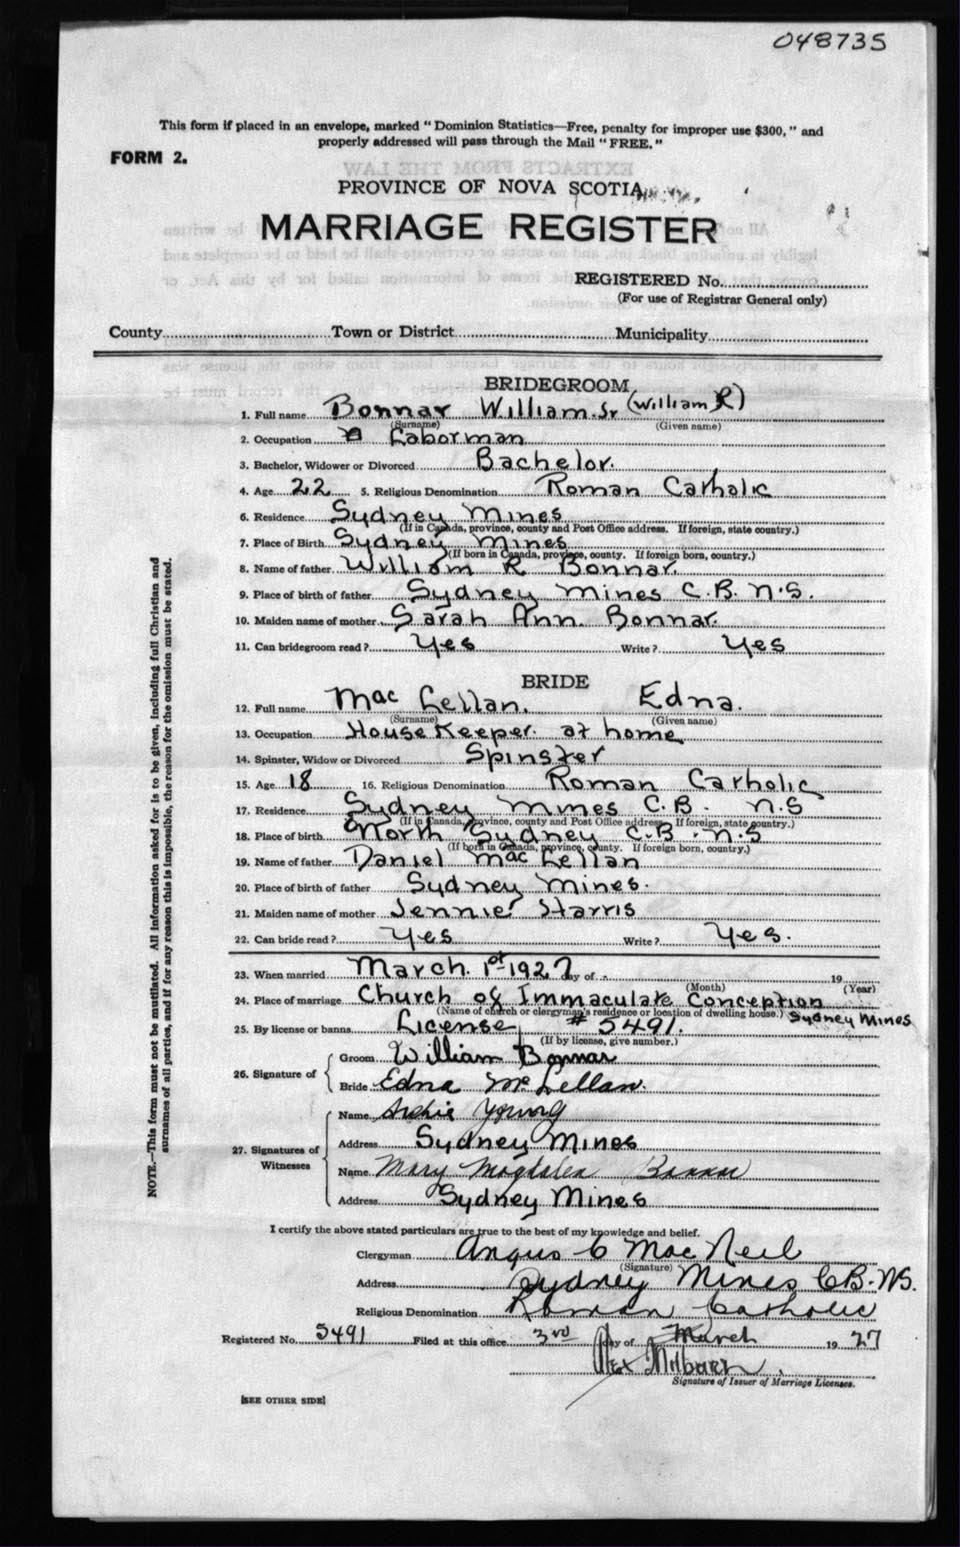 048735
This form if placed in an envelope, marked "Dominion Statistics—Free, penalty for improper use $300," and
properly addressed will pass through the Mail "FREE."
FORM 2.
PROVINCE OF NOVA SCOTIA
MARRIAGE REGISTER
REGISTERED No.
(For use of Registrar General only)
County Town or District Municipality
BRIDEGROOM
1. Full name Bonnar William Jr (William R)
(Surname) (Given name)
2. Occupation Laborman
3. Bachelor, Widower or Divorced Bachelor.
4. Age 22 5. Religious Denomination Roman Catholic
6. Residence Sydney Mines
(If in Canada, province, county and Post Office address. If foreign, state country.)
7. Place of Birth Sydney Mines
(If born in Canada, province, county. If foreign born, country.)
8. Name of father William R Bonnar.
9. Place of birth of father Sydney Mines C.B. N.S.
10. Maiden name of mother Sarah Ann. Bonnar.
11. Can bridegroom read? Yes Write? Yes
BRIDE
12. Full name Mac Lellan. Edna.
(Surname) (Given name)
13. Occupation House Keeper. at home
14. Spinster, Widow or Divorced Spinster
15. Age 18 16. Religious Denomination Roman Catholic
17. Residence Sydney Mines C.B. N.S
(If in Canada, province, county and Post Office address. If foreign, state country.)
18. Place of birth North Sydney C.B. N.S
(If born in Canada, province, county. If foreign born, country.)
19. Name of father Daniel Mac Lellan
20. Place of birth of father Sydney Mines.
21. Maiden name of mother Jennie Harris
22. Can bride read? Yes Write? Yes.
23. When married March. 1st 1927 day of 19
(Month) (Year)
24. Place of marriage Church of Immaculate Conception
(Name of church or clergyman's residence or location of dwelling house.) Sydney Mines
25. By license or banns License # 5491.
(If by license, give number.)
26. Signature of
Groom William Bonnar
Bride Edna McLellan.
27. Signatures of Witnesses
Name Archie Young
Address Sydney Mines
Name Mary Magdalen Bonnar
Address Sydney Mines
I certify the above stated particulars are true to the best of my knowledge and belief.
Clergyman Angus C MacNeil
(Signature)
Address Sydney Mines CB. NS.
Religious Denomination Roman Catholic
Registered No. 5491 Filed at this office 3rd day of March 19 27
Alex Milburn
Signature of Issuer of Marriage Licenses.
[SEE OTHER SIDE]
NOTE.—This form must not be mutilated. All information asked for is to be given, including full Christian and
surnames of all parties, and if for any reason this is impossible, the reason for the omission must be stated.